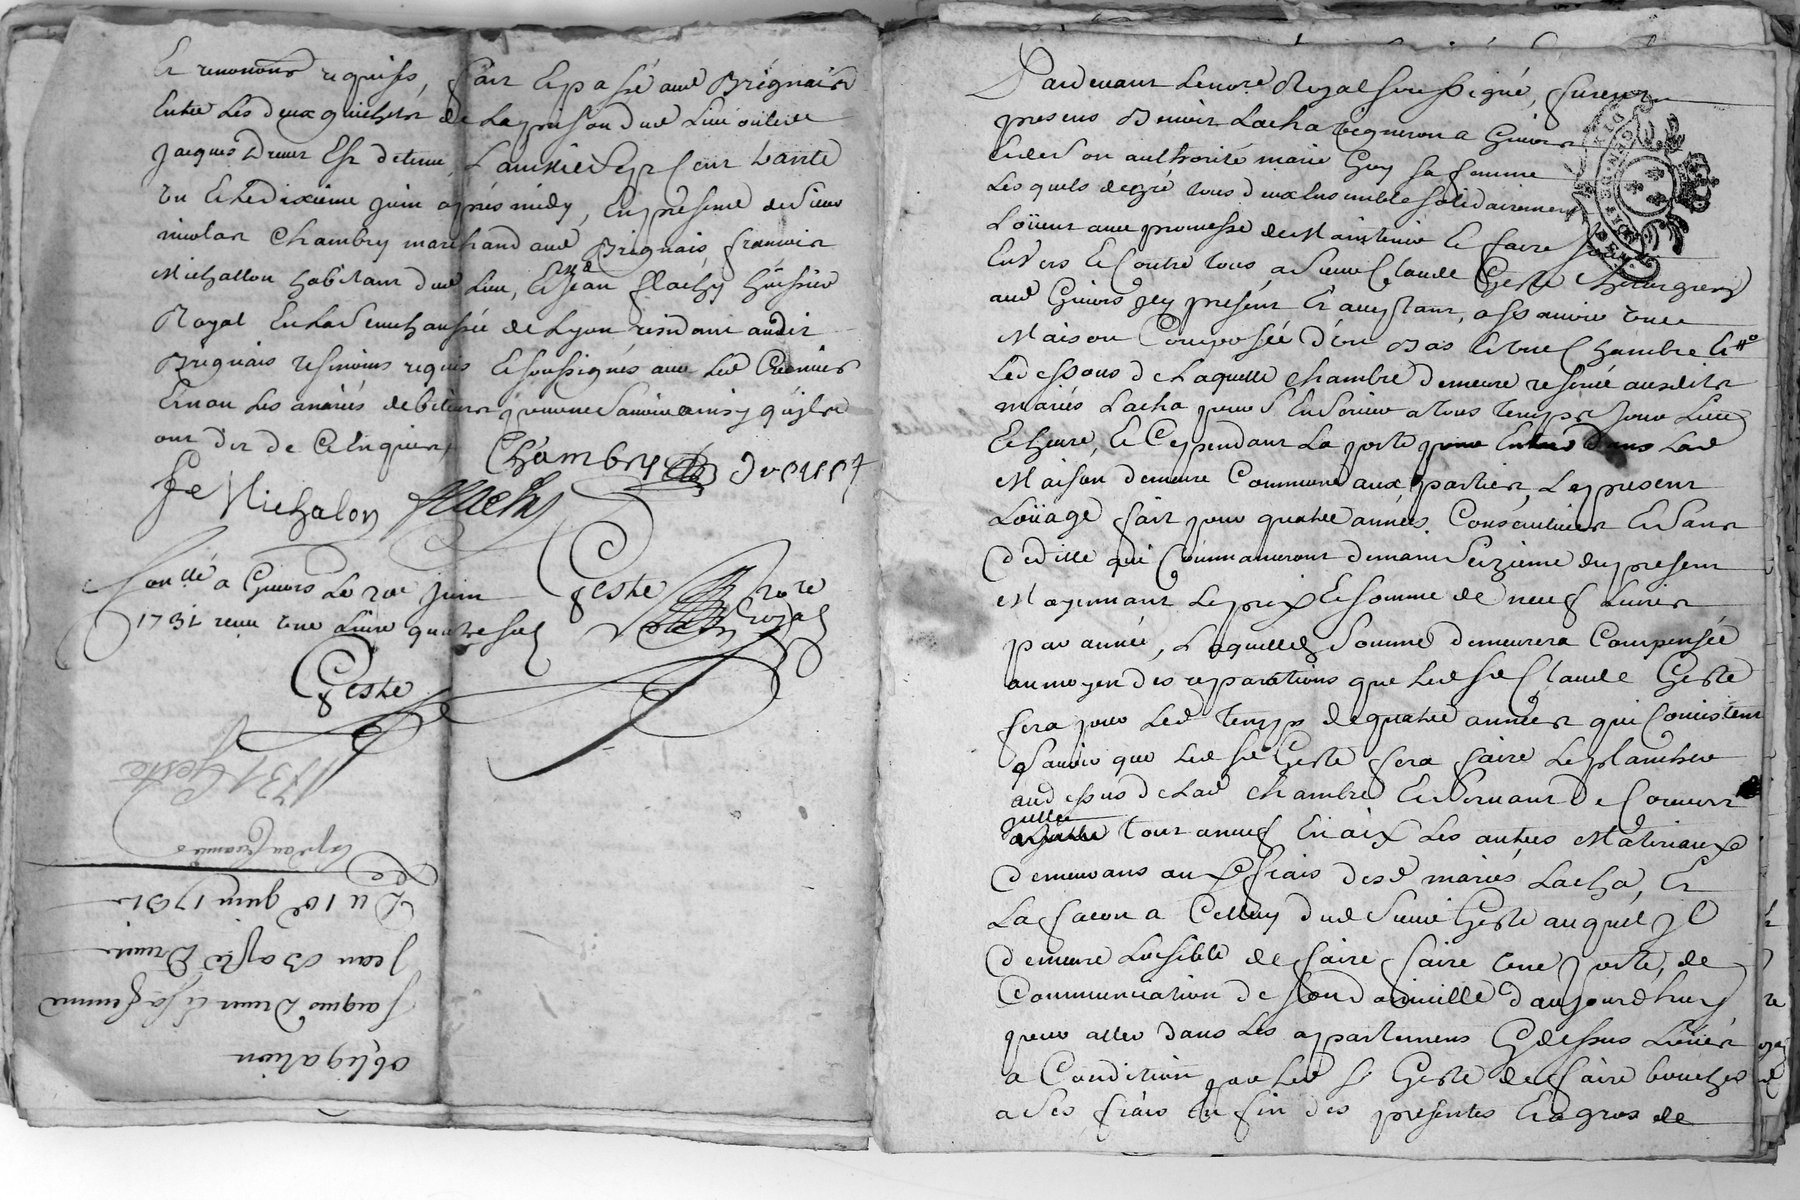 Et renoncns requises, fait et passé aud Brignais
Entre les deux guichets de la prison dud lieu ou led
Jacques Drevet Est detenu, L'an mil sept cent trante
un Et le dixième juin après midy, En présence de sieur
nicolas Chambry marchand aud Brignais, francois
Michallon habitant dud lieu, Et me jean flachy huissier
Royal En la Senechaussée de Lyon residant audit
Brignais tesmoins requis Et soussignés avec led Creancier
Et non les mariés debiteurs pour ne scavoir ainsy qu'ils
ont dit de ce Enquis
Chambry
fs Michalon flachy
Geste nore Royal
Conllé a Givors Le 20e juin
1731 receu une livre quatre sols
Geste
1731 Geste
Du 10e juin 1731
Jean
Jacques Drevet et sa femme
obligation
Pardevant Le nore Royal soussigné, furent
presens Benoit Lacha vigneron a Givors
Et de son authorité marie Guy sa femme
Lesquels de gré tous deux Ensemble solidairement
Loüent avec promesse de Maintenir Et faire jouir
Envers Et Contre tous a sieur Claude Geste
aud Givors jcy présent Et acceptant, asscavoir une
Maison Composée d'un Bas Et une Chambre Et
Le dessous de laquelle chambre demeure reservé ausdits
mariés Lacha pour s'En servir a tous temps jour Lieu
Et heure, Et Cependant La porte pour Entrer dans Lad
Maison demeure Commune aux parties, Le present
Loüage fait pour quatre années Consécutives Et sans
déditte qui Commanceront demain seizième du present
Moyennant Le prix Et somme de neuf Livres
par année, Laquelle somme demeurera Compensée
au moyen des reparations que Led sr Claude Geste
fera pour Led temps de quatre années qui Consistent
scavoir que Led sr Geste fera faire Le plancher
au dessus de Lad chambre Et servant de Couvert
tout a neuf En aix Les autres Materiaux
demeurans aux frais desd mariés Lacha, Et
La facon a Celluy dud sieur Geste auquel jl
demeure Loisible de faire faire une porte, de
Communication de son domicille d'aujourdhuy
pour aller dans Les appartemens Cy dessus Loüés
a Condition par Led sr Geste de faire boucher
a ses frais En fin des presentes Et a gros de